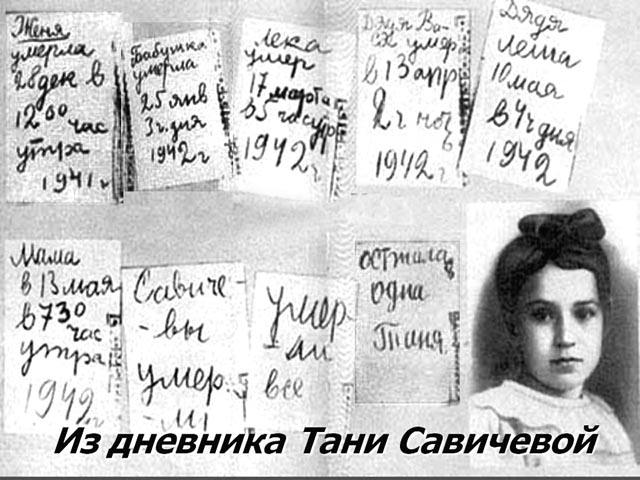 Женя
умерла
28 дек в
12 00 час
утра
1941 г
Бабушка
умерла
25 янв
3 ч. дня
1942 г
Лека
умер
17 марта
в 5 час утр
1942 г
Дядя Ва-
ся умер
в 13 апр
2 ч ноч
1942 г
Дядя
Леша
10 мая
в 4 ч дня
1942
Мама
в 13 мая
в 7 30
час
утра
1942 г
Савиче-
-вы
умер-
-ли
умер
-ли
все
осталась
одна
Таня
Из дневника Тани Савичевой